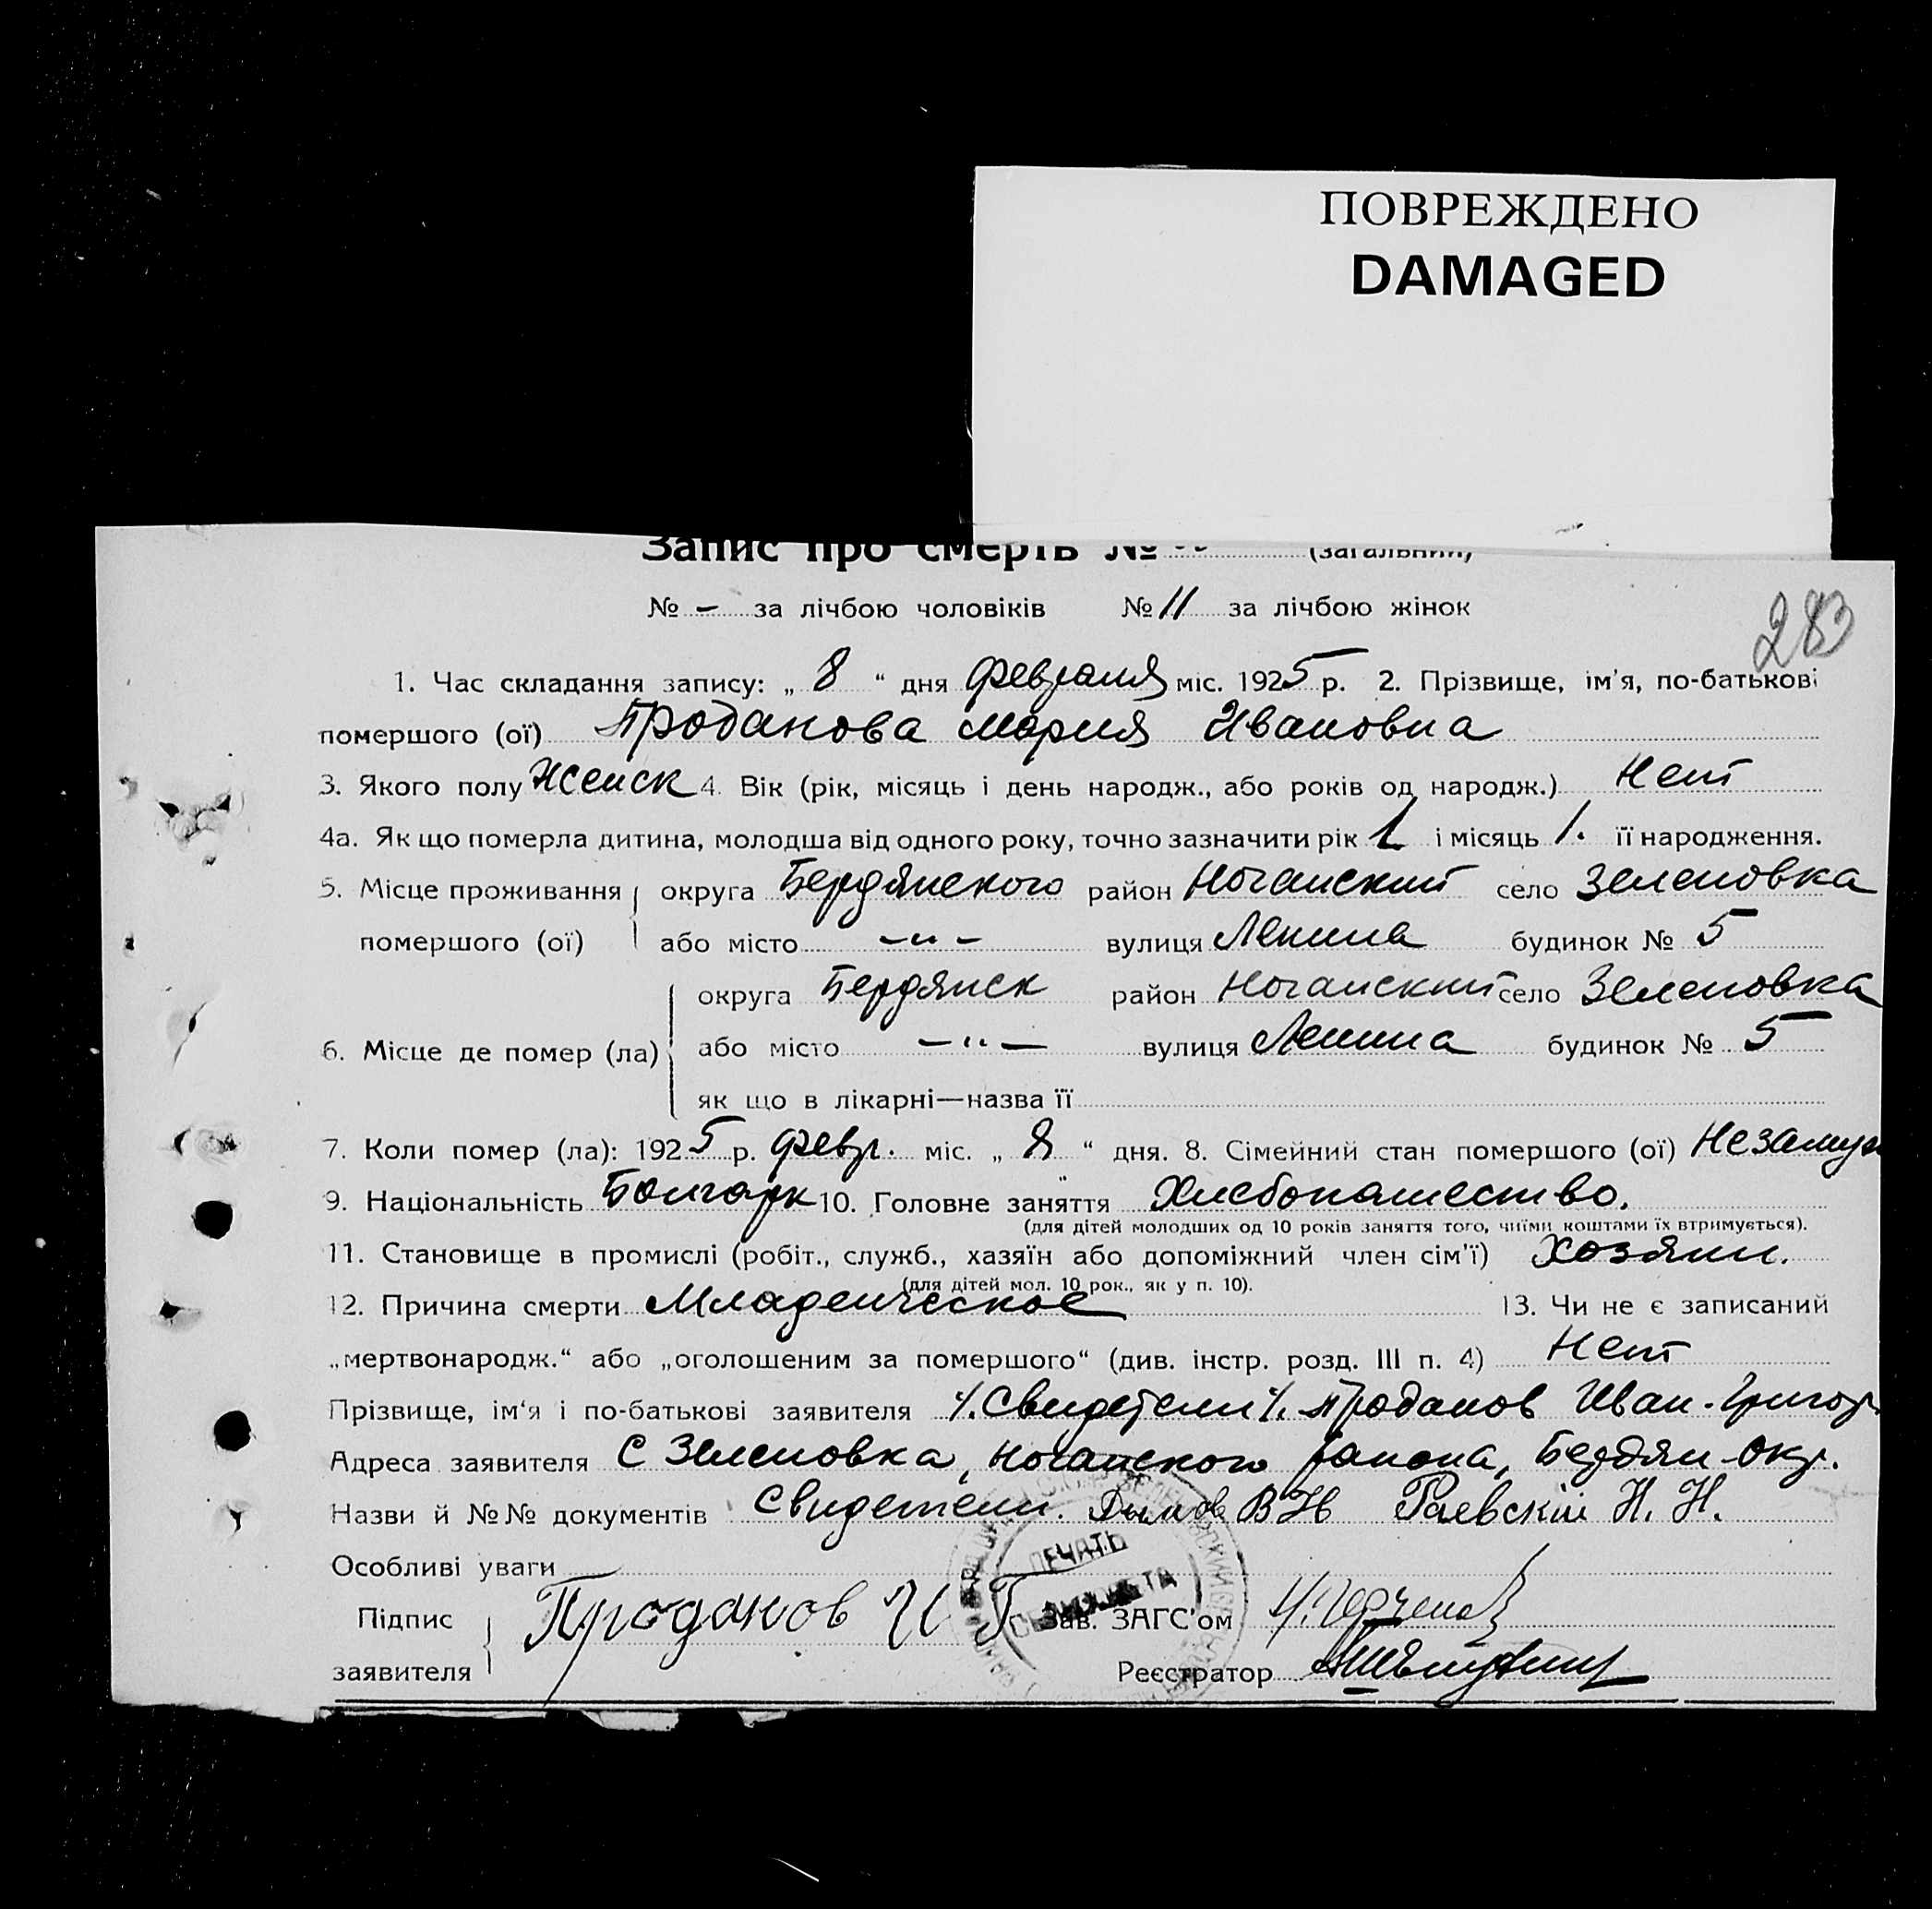 ПОВРЕЖДЕНО
DAMAGED
Запис про смерть № (загальний)
№ – за лічбою чоловіків № 11 за лічбою жінок
283
1. Час складання запису: „ 8 “ дня февраля міс. 1925 р. 2. Прізвище, ім'я, по-батькові
помершого (ої) Проданова Мария Ивановна
3. Якого полу Женск 4. Вік (рік, місяць і день народж., або років од народж.) Нет
4а. Як що померла дитина, молодша від одного року, точно зазначити рік 1 і місяць 1. її народження.
5. Місце проживання округа Бердянского район Ногайский село Зеленовка
помершого (ої) або місто –"– вулиця Ленина будинок № 5
округа Бердянск район Ногайский село Зеленовка
6. Місце де помер (ла) або місто –"– вулиця Ленина будинок № 5
як що в лікарні—назва її
7. Коли помер (ла): 1925 р. февр. міс. „ 8 “ дня. 8. Сімейний стан помершого (ої) Незамуж
9. Національність Болгарк 10. Головне заняття Хлебопашество.
(для дітей молодших од 10 років заняття того, чиїми коштами їх втримується).
11. Становище в промислі (робіт., служб., хазяїн або допоміжний член сім'ї) Хозяин.
(для дітей мол. 10 рок., як у п. 10).
12. Причина смерти Младенческое 13. Чи не є записаний
„мертвонародж.“ або „оголошеним за помершого“ (див. інстр. розд. III п. 4) Нет
Прізвище, ім'я і по-батькові заявителя Свидетели Проданов Иван. Григор.
Адреса заявителя С Зеленовка, Ногайского района, Бердян Окр.
Назви й №№ документів Свидетели. В Н Раевскій Н. Н.
Особливі уваги
Підпис Проданов И Г Зав. ЗАГС'ом
заявителя Реєстратор
ПЕЧАТЬ